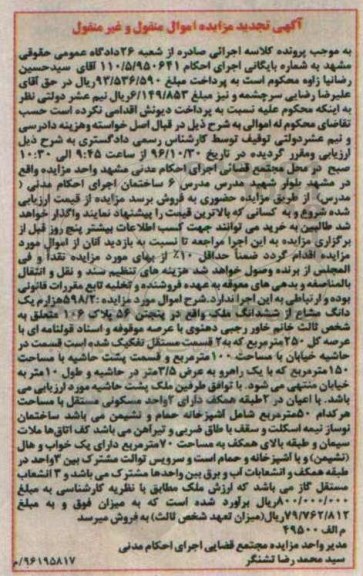 آگهی تجدید مزایده اموال منقول و غیر منقول
به موجب پرونده کلاسه اجرائی صادره از شعبه ۲۶دادگاه عمومی حقوقی
مشهد به شماره بایگانی اجرای احکام ۱۱۰/۵/۹۵۰۶۴۱ آقای سیدحسین
رضانیا زاوه محکوم است به پرداخت مبلغ ۹۳/۵۳۶/۵۹۰ریال در حق آقای
علیرضا رضایی سرچشمه و نیز مبلغ ۶/۱۴۹/۸۵۳ریال نیم عشر دولتی نظر
به اینکه محکوم علیه نسبت به پرداخت دیونش اقدامی نکرده است حسب
تقاضای محکوم له اموالی به شرح ذیل در قبال اصل خواسته وهزینه دادرسی
و نیم عشردولتی توقیف توسط کارشناس رسمی دادگستری به شرح ذیل
ارزیابی ومقرر گردیده در تاریخ ۹۶/۱۰/۳۰ از ساعت ۹:۴۵ الی ۱۰:۳۰
صبح در محل مجتمع قضائی اجرای احکام مدنی مشهد واحد مزایده واقع
در مشهد بلوار شهید مدرس مدرس ۶ ساختمان اجرای احکام مدنی (
مدرس) از طریق مزایده حضوری به فروش برسد مزایده از قیمت ارزیابی
شده شروع و به کسانی که بالاترین قیمت را پیشنهاد نمایند واگذار خواهد
شد طالبین به خرید می توانند جهت کسب اطلاعات بیشتر پنج روز قبل از
برگزاری مزایده به این اجرا مراجعه تا نسبت به بازدید آنان از اموال مورد
مزایده اقدام گردد ضمناً حداقل ۱۰٪ از بهای مورد مزایده نقداً و فی
المجلس از برنده وصول خواهد شد هزینه های تنظیم سند و نقل و انتقال
بالمناصفه و بدهی های معوقه به عهده فروشنده و تخلیه تابع مقررات قانونی
بوده و ارتباطی به این اجرا ندارد.شرح اموال مورد مزایده :۵۹۸/۲هزارم یک
دانگ مشاع از ششدانگ ملک واقع در پنجتن ۵۶ پلاک ۱۰۶ متعلق به
شخص ثالث خانم خاور رجبی دهنوی با عرصه موقوفه و اسناد قولنامه ای با
عرصه کل ۲۵۰مترمربع که به۲ قسمت مستقل تفکیک شده است قسمت در
حاشیه خیابان با مساحت ۱۰۰مترمربع و قسمت پشت حاشیه با مساحت
۱۵۰مترمربع که با یک راهرو به عرض ۳/۵متر در حاشیه و طول ۱۰متر به
خیابان منتهی می شود. با توافق طرفین ملک پشت حاشیه مورد ارزیابی می
باشد. با اعیان در ۲طبقه همکف دارای ۲واحد مسکونی مستقل با مساحت
هرکدام ۵۰مترمربع شامل آشپزخانه حمام و نشیمن می باشد ساختمان
نوساز نیمه اسکلت و سقف با طاق ضربی و تیرآهن می باشد کف اتاق‌ها ملات
سیمان و طبقه بالای همکف به مساحت ۷۰مترمربع دارای یک خواب و هال
(نشیمن) و با آشپزخانه و حمام است و سرویس توالت مشترک بین ۳واحد در
طبقه همکف و انشعابات آب و برق بین واحدها مشترک می باشد و ۳ انشعاب
مستقل گاز می باشد که ارزش ملک مطابق با نظریه کارشناسی به مبلغ
۸۰۰/۰۰۰/۰۰۰ریال برآورد شده است که به میزان فوق و به مبلغ
۷۹/۷۶۲/۸۱۲ریال(میزان تعهد شخص ثالث) به فروش میرسد
م الف ۴۹۵۰۰
مدیر واحد مزایده مجتمع قضایی اجرای احکام مدنی
سید محمد رضا تشنگر
۹۶۱۹۵۸۱۷/م